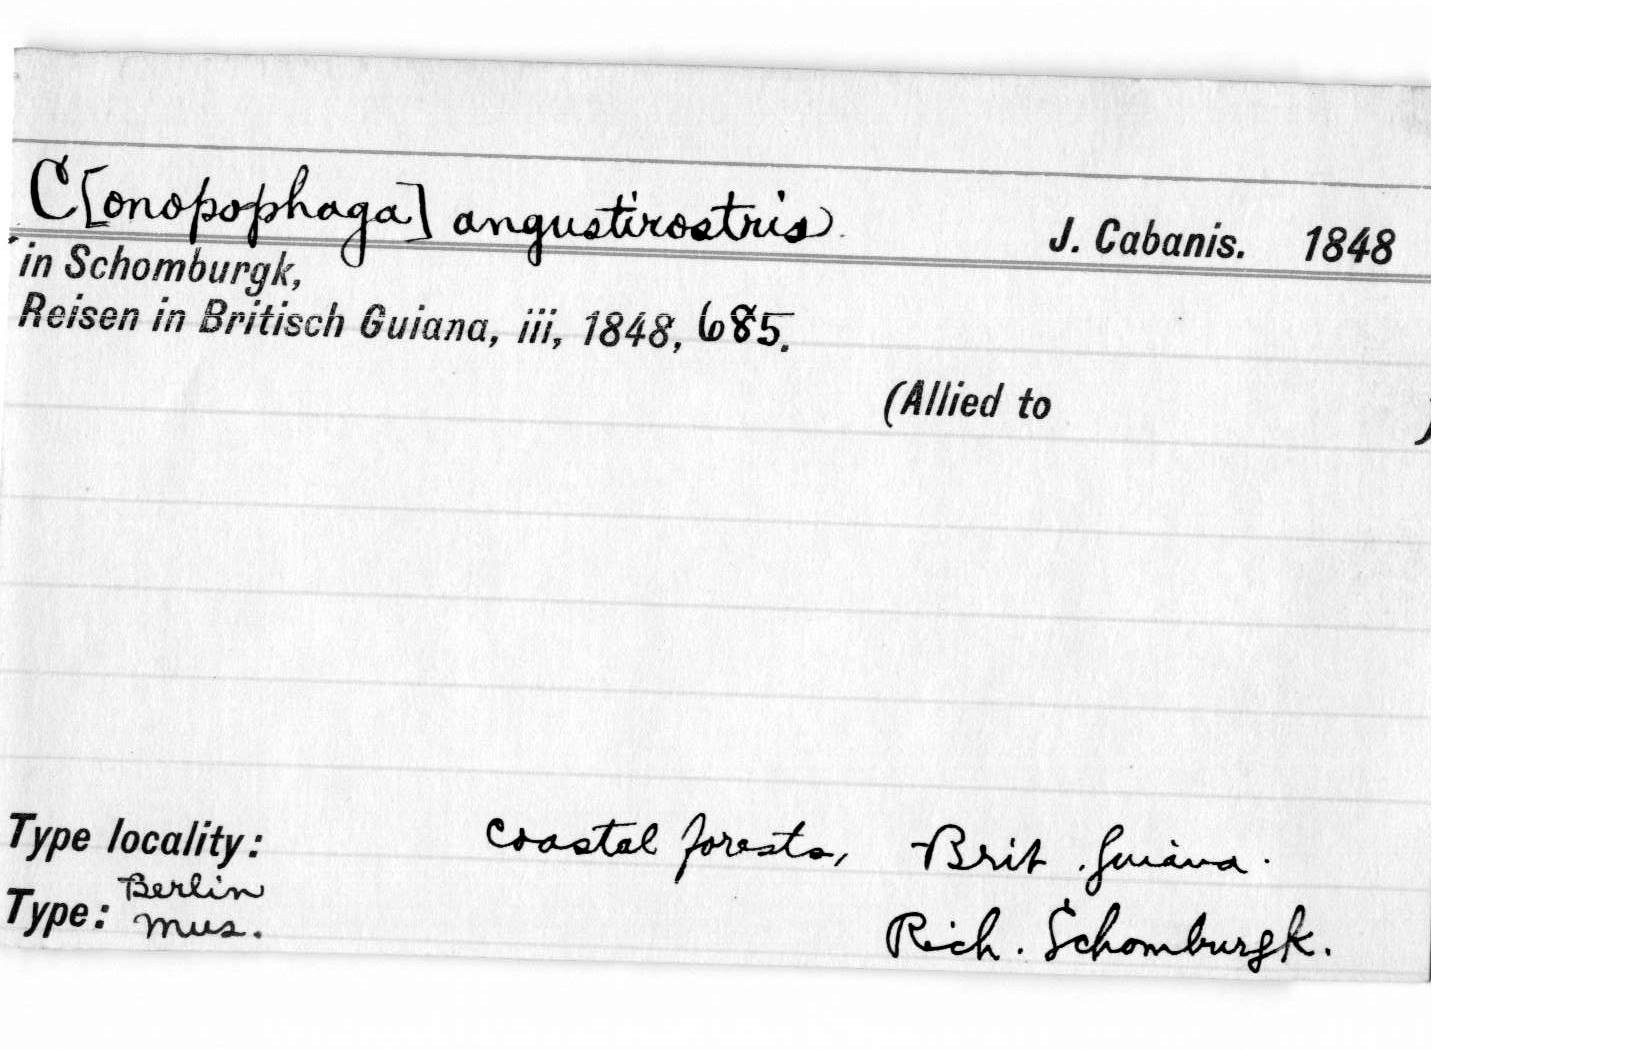 C[onopophaga] angustirostris. J. Cabanis. 1848
in Schomburgk,
Reisen in Britisch Guiana, iii, 1848, 685.
(Allied to )
Type locality: Coastal forests, Brit. Guiana.
Type: Berlin Mus. Rich. Schomburgk.